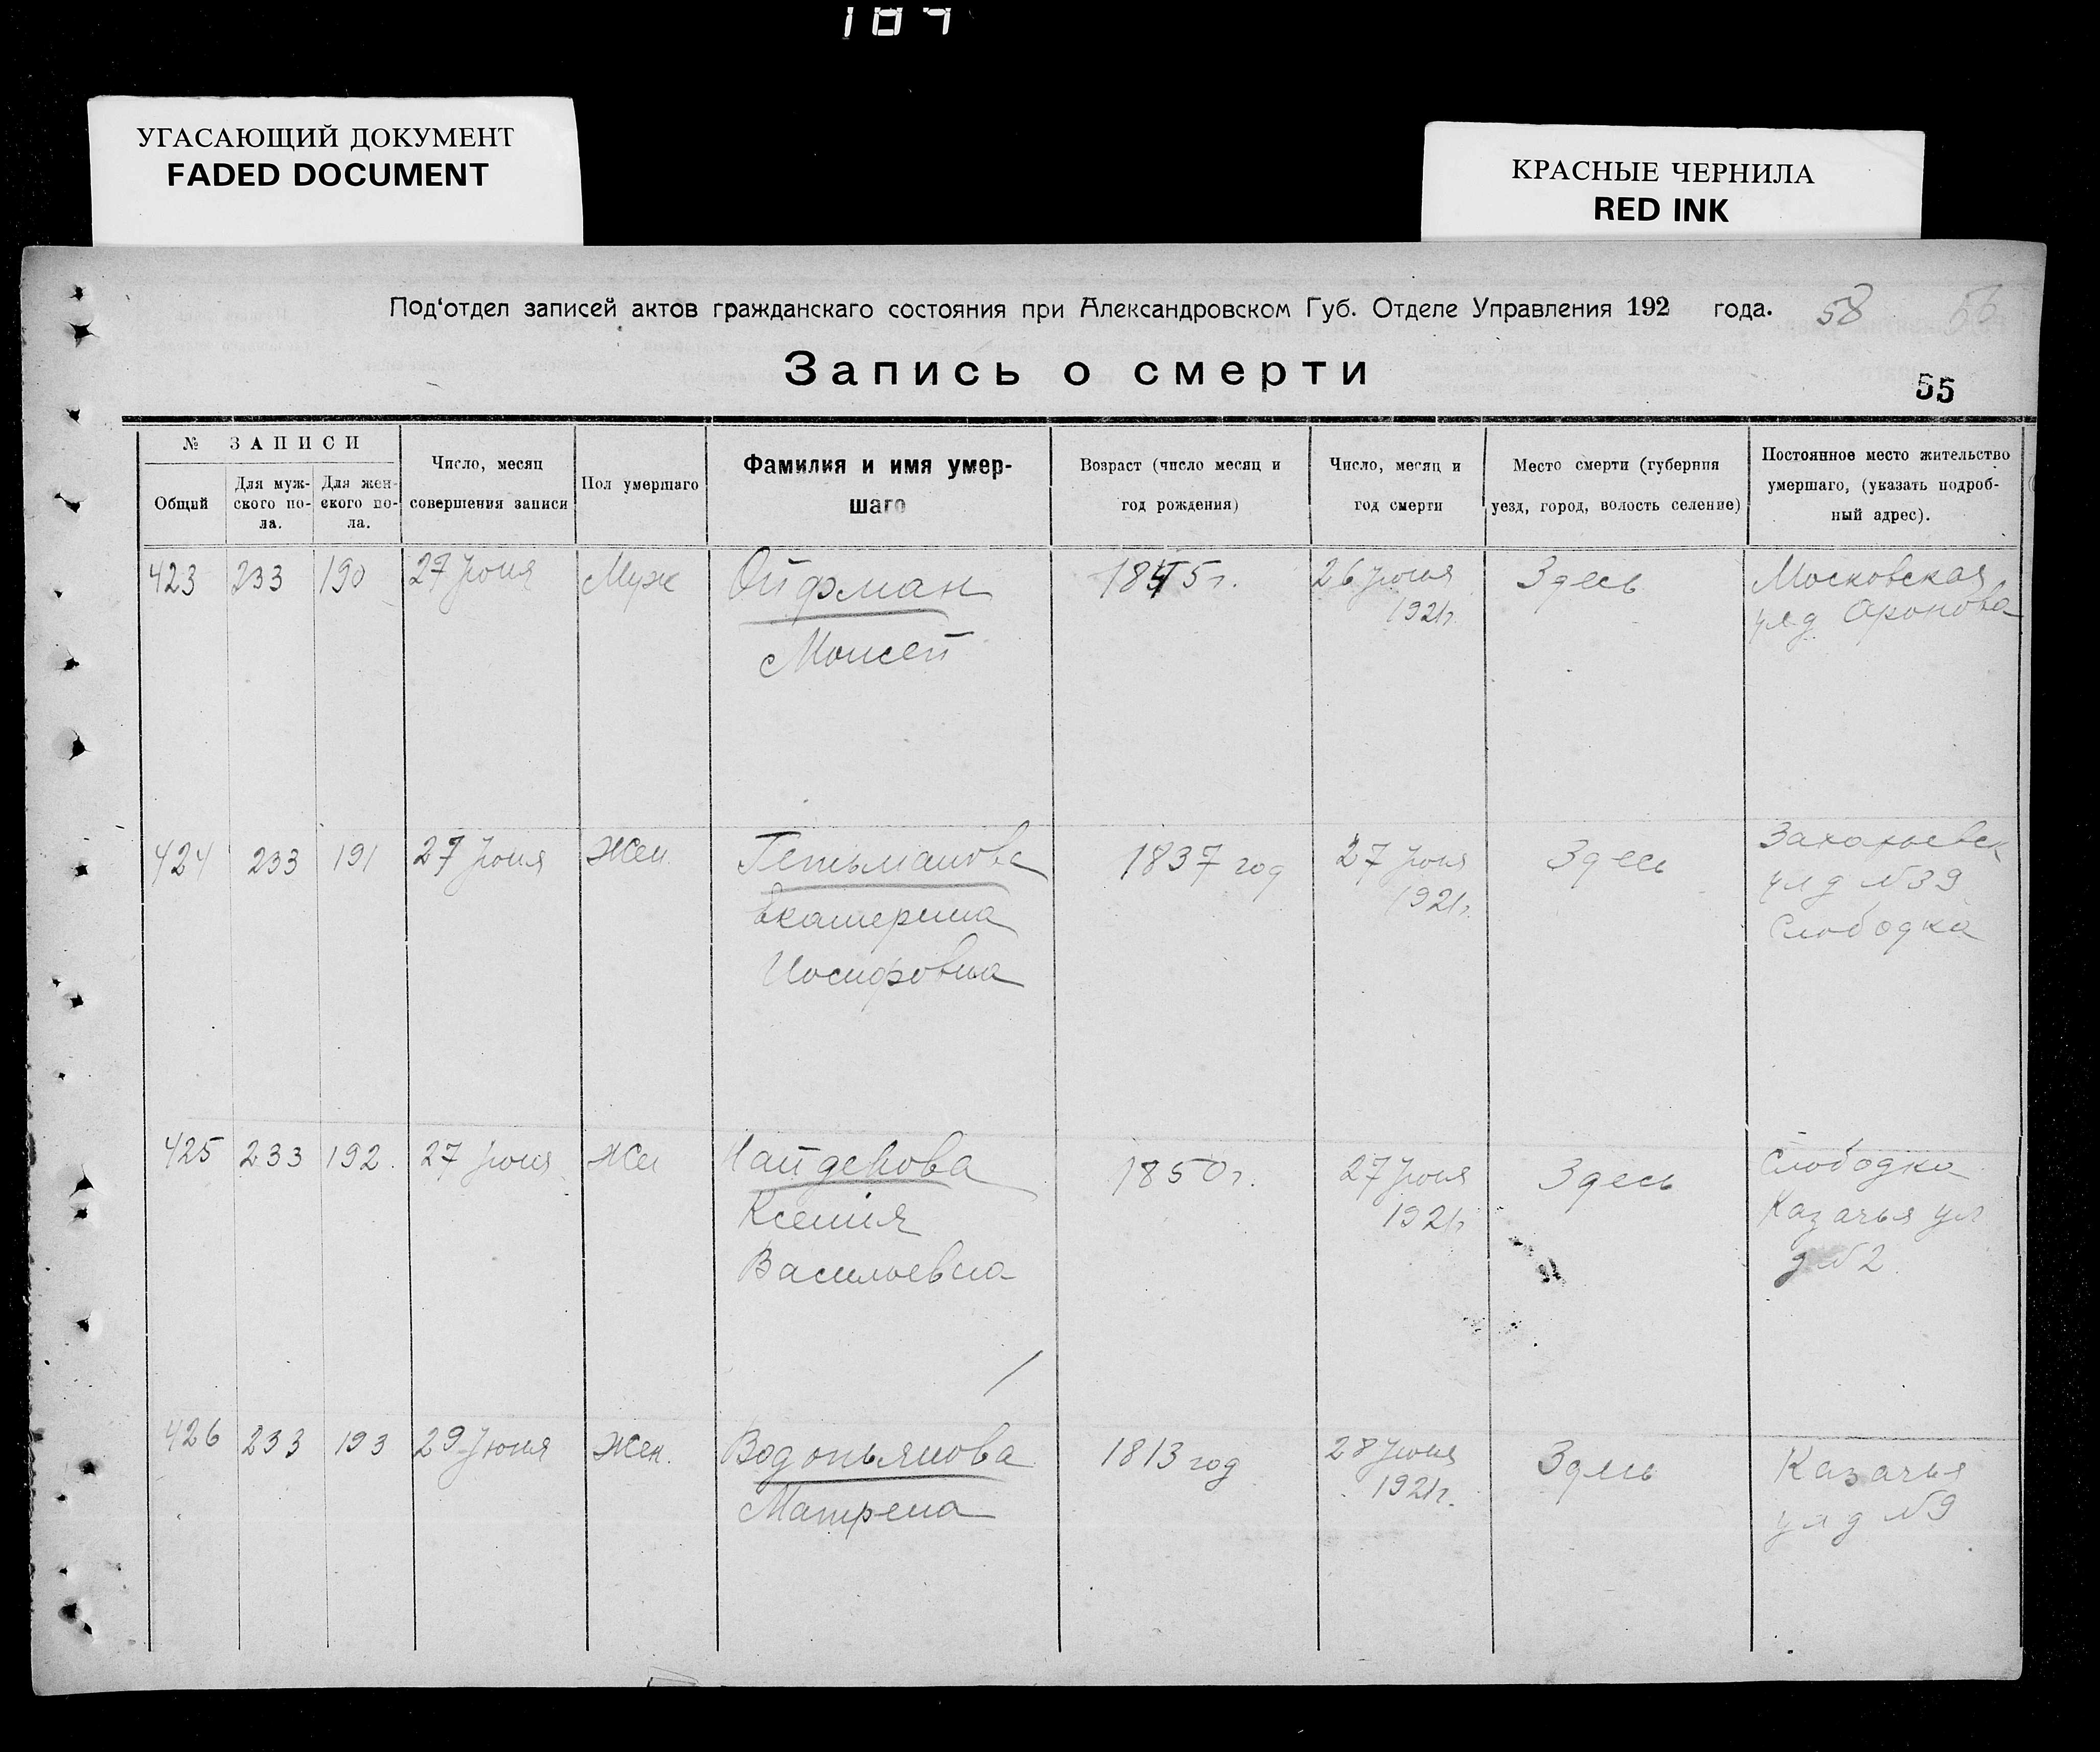 УГАСАЮЩИЙ ДОКУМЕНТ
FADED DOCUMENT
КРАСНЫЕ ЧЕРНИЛА
RED INK
Под'отдел записей актов гражданскаго состояния при Александровском Губ. Отделе Управления 192 года.
58
Запись о смерти
55
№ ЗАПИСИ
Общий
Для муж-
ского по-
ла.
Для жен-
ского по-
ла.
Число, месяц
совершения записи
Пол умершаго
Фамилия и имя умер-
шаго
Возраст (число месяц и
год рождения)
Число, месяц и
год смерти
Место смерти (губерния
уезд, город, волость селение)
Постоянное место жительство
умершаго, (указать подроб-
ный адрес).
423 233 190 27 Июня Муж Ойфман 1845г. 26 Июня Здесь Московская
1921г. ул д Аронова
Моисей
424 233 191 27 Июня Жен. Гетьманова 1837 год 27 Июня Здесь
1921г. ул д №39
Екатерина Слободка
Иосифовна
425 233 192. 27 Июня Же Найденова 1850г. 27 Июня Здесь Слободка
Ксения 1921г Казачья ул
Васильевна д №2
426 233 193 29 Июня Жен. Водопьянова 1813 год 28 Июня Здесь Казачья
Матрена 1921г. ул д №9